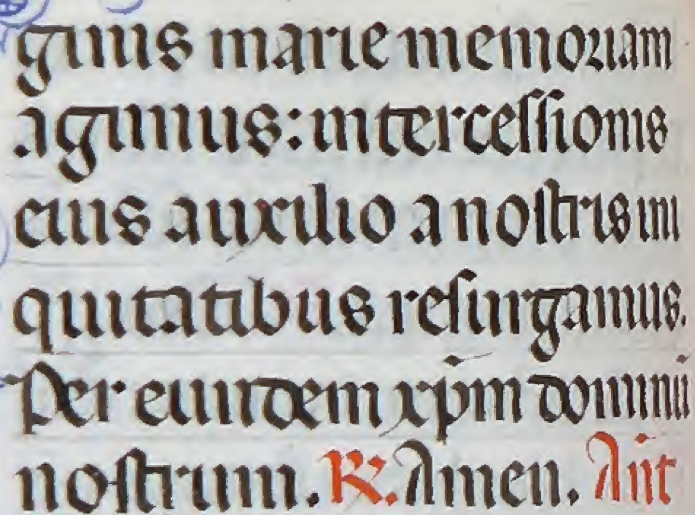 ginis marie memoriam
agimus: intercessionis
eius auxilio a nostris ini
quitatibus resurgamus.
Per eundem xp̄m dominū
nostrum. R̷. Amen. An̄t